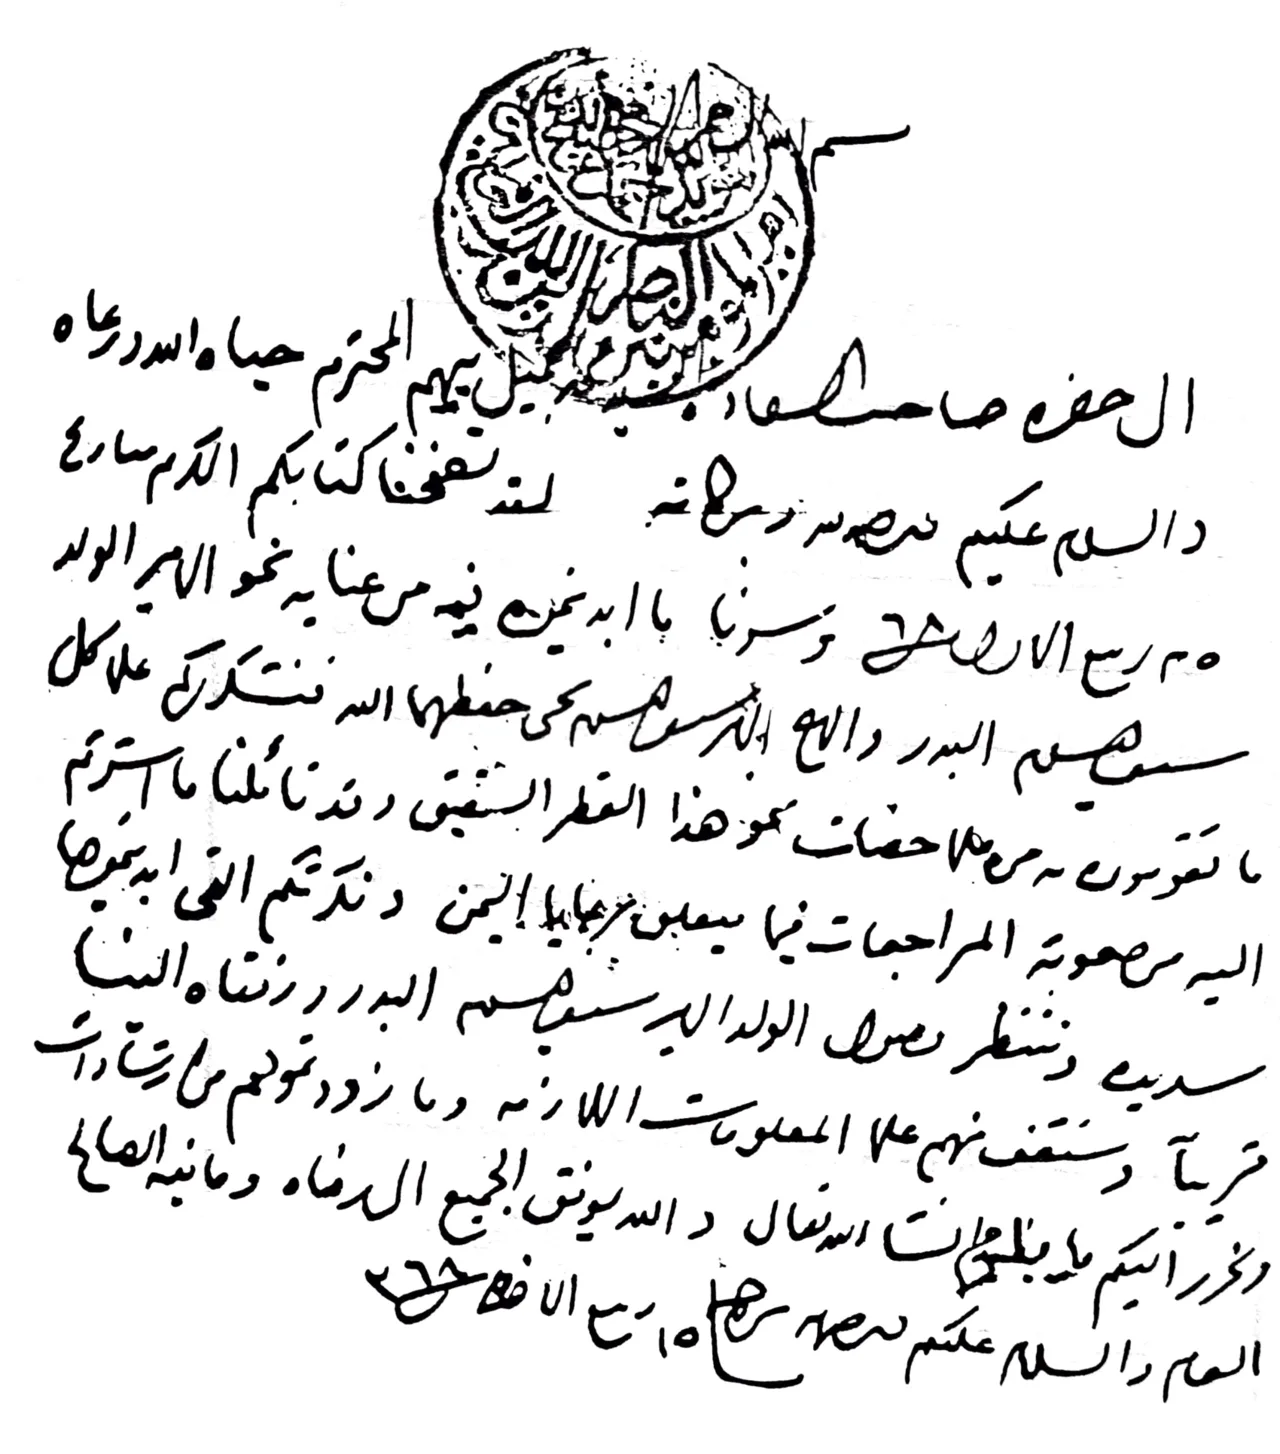 بسم الله الرحمن الرحيم
الناصر لدين الله
الى حضرة صاحب السعادة السيد جميل بيهم المحترم حياه الله ورعاه
والسلام عليكم ورحمة الله وبركاته لقد تصفحنا كتابكم الكريم مبارع
٢٥ ربيع الاول ٦٨ وسرنا ما ابديتموه فيه من عناية نحو الامير الولد
سيف الاسلام البدر والاخ سيف الاسلام يحيى حفظهما الله فنشكركم على كل
ما تقومون به من ملاحضات نحو هذا القطر الشقيق وقد تأملنا ما اشرتم
اليه من صعوبة المراجعات فيما يتعلق برعايا اليمن وفكرتكم التي ابديتموها
سديده وننتظر وصول الولد سيف الاسلام البدر ورفقاه الينا
قريباً وسنقف منهم على المعلومات اللازمه وما زودتموهم من ارشادات
ونحرر اليكم ما يلزم انشا الله تعالى والله يوفق الجميع الى رضاه وما فيه الصالح
العام والسلام عليكم ورحمة الله ١٥ ربيع الاخر ٣٦٨